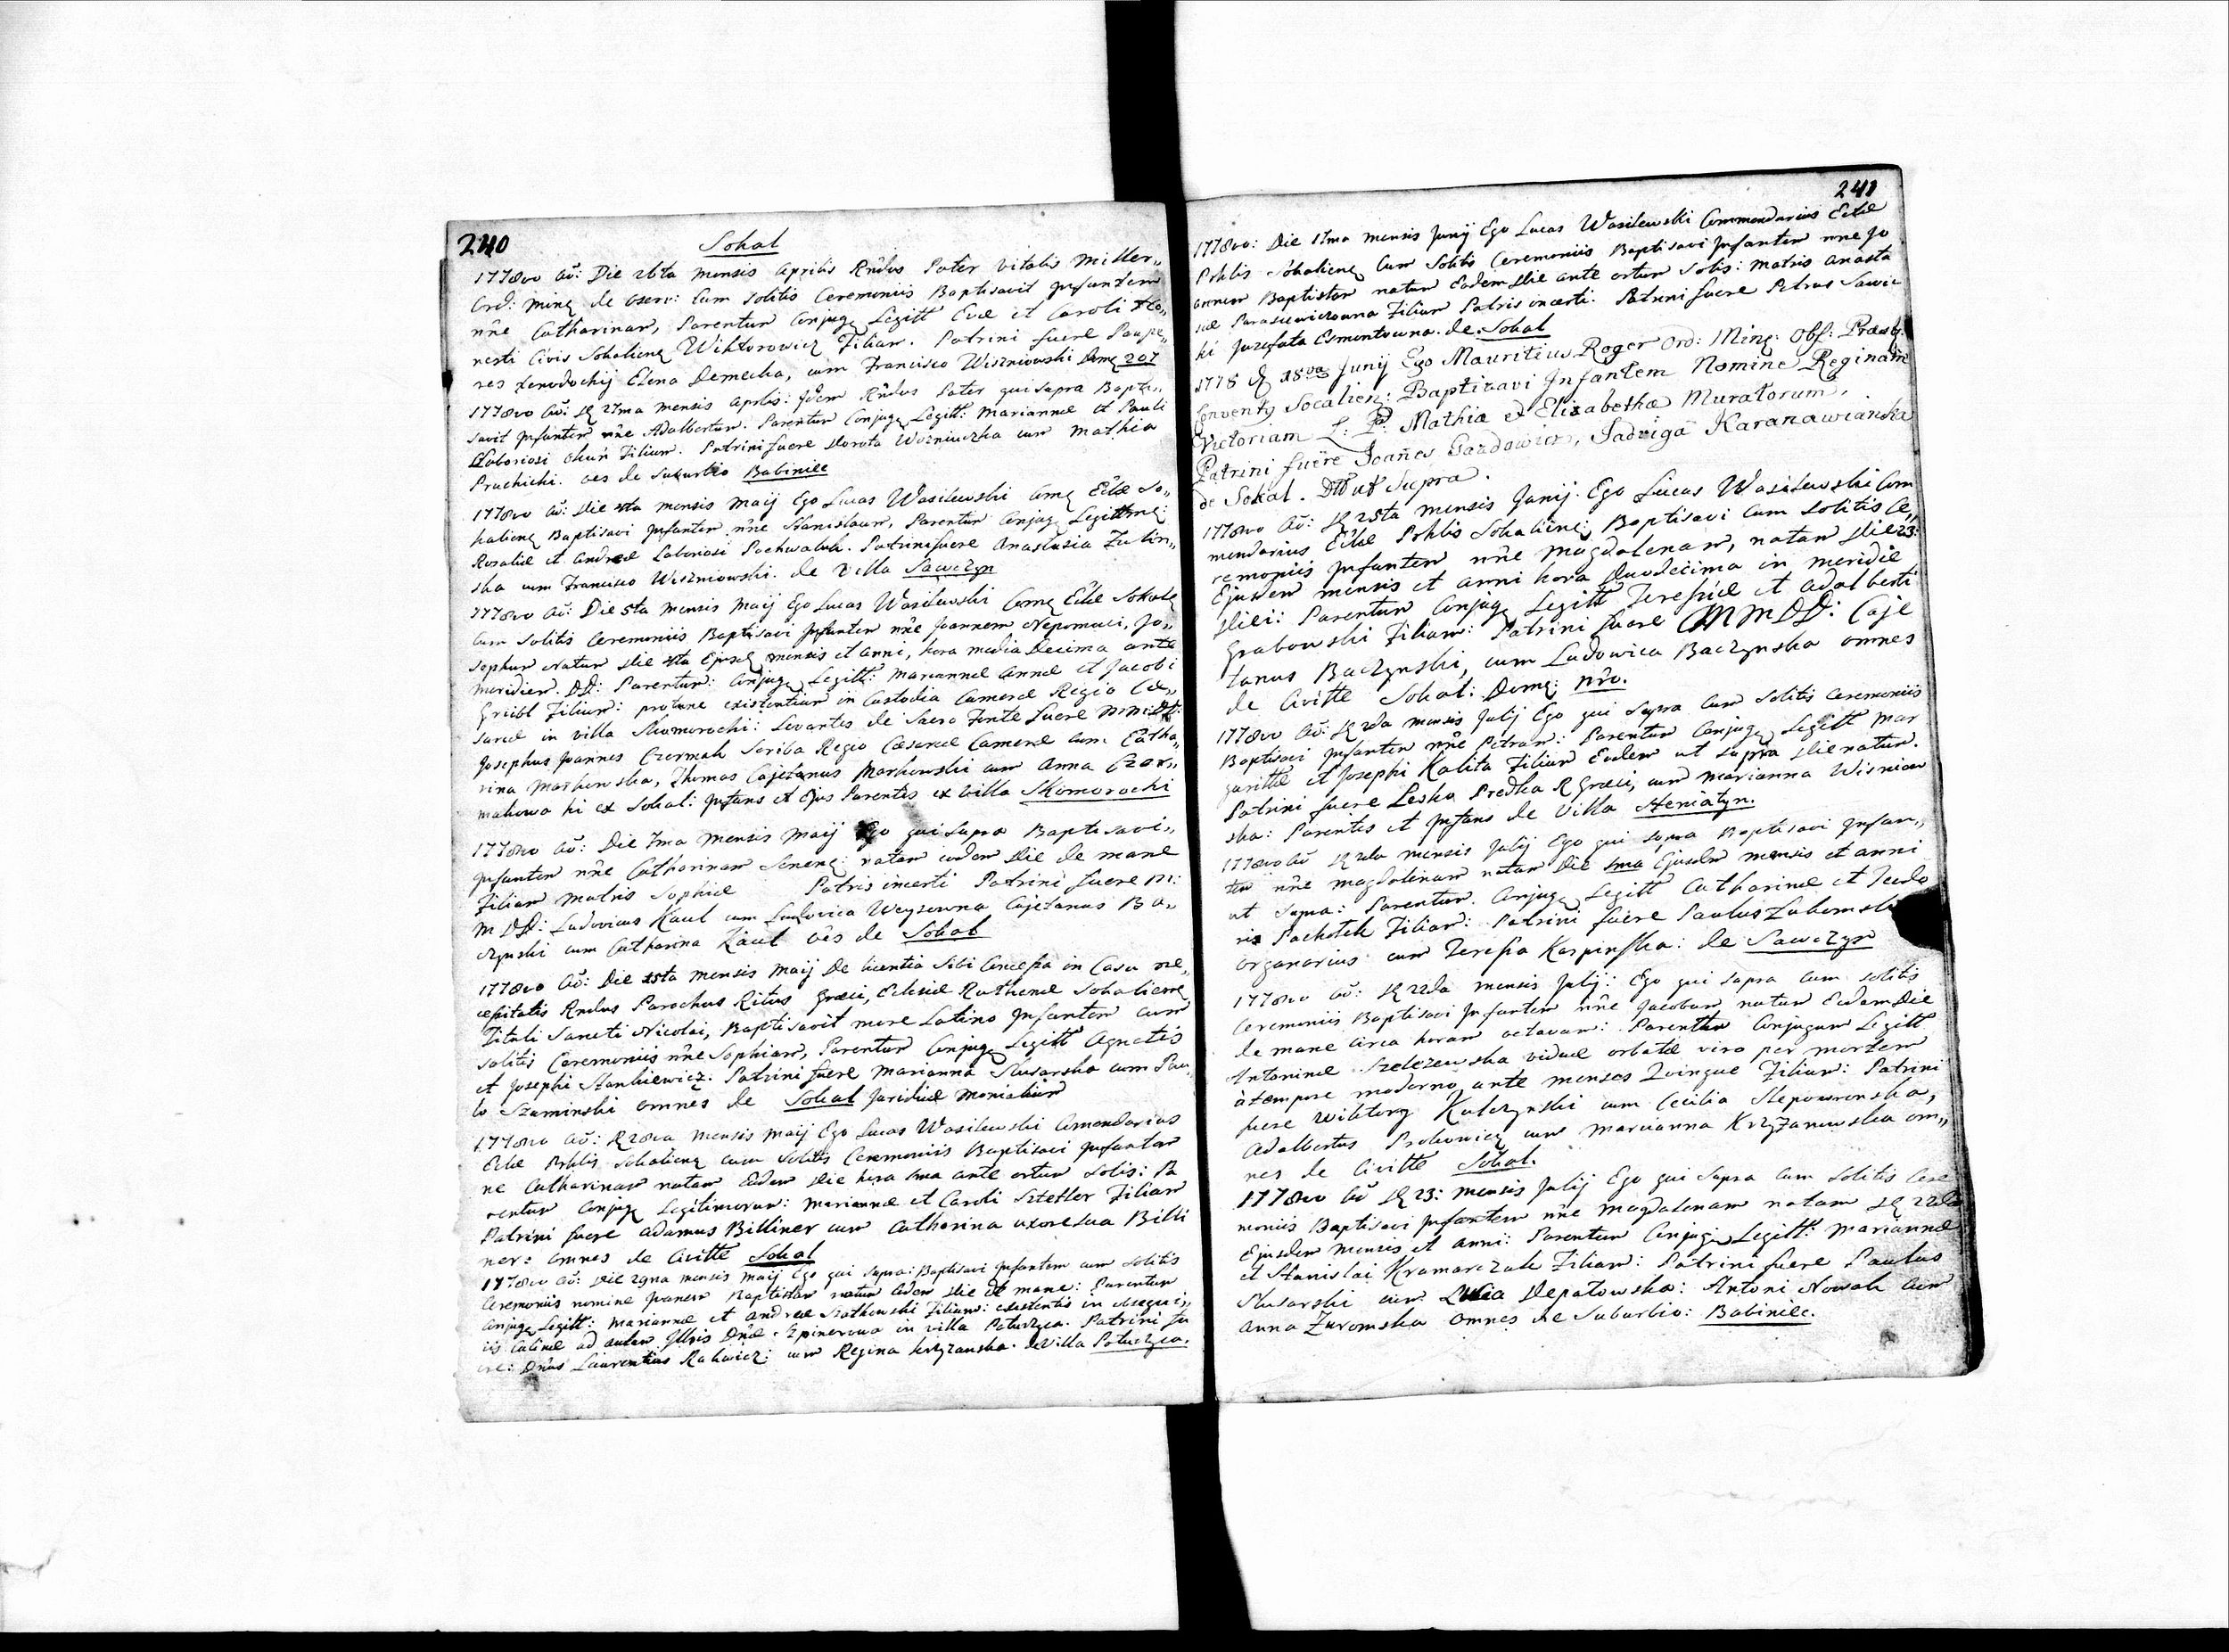 240
Sokal
1778vo aō: Die 26ta mensis Aprilis Rndus Pater Vitalis Miller„
Ord: Minq de oserv: Cum solitis Ceremoniis Baptisavit Infantem
nn̄e Catharinam, Parentum Conjugq Legitt Evæ et Caroli
nesti Civis Sokalienq Wiktorowicz Filiam. Patrini fuere Paupe„
res Xenodochij Elena Demecka, cum Francisco Wiszniowski Domq 207
1778vo aō: 27ma mensis Aprlis: Idem Rndus Pater qui supra Bapti„
savit Infantem nn̄e Adalbertum. Parentum Conjugq Legitt: Mariannæ et Pauli
Laboriosi Okuń Filium. Patrini fuere Dorota Wozniuczka cum Mathia
Pruchicki. oes de Suburbio Babiniec
1778vo aō: Die mensis Maij Ego Lucas Wasilewski Comq Eclæ So„
kalienq Baptisavi Infantem nn̄e Stanislaum, Parentum Conjugq Legittimq:
Rosaliæ et Andreæ Laboriosi Pochwaluk. Patrini fuere Anastasia Zulin„
ska cum Francisco Wiszniowski. de Villa Sawczyn
1778vo aō: Die 5ta mensis Maij Ego Lucas Wasilewski Comq Eclæ Sokalq
Cum solitis Ceremoniis Baptisavi Infantem nn̄e Joannem Nepomuci, Jo„
sephum Natum Die Ejusdq mensis et anni, hora media Decima ante
meridiem. DD: Parentum: Conjugq Legitt: Mariannæ Annæ et Jacobi
Griibl Filium: protunc existentium in Custodia Cameræ Regio Cæ„
sareæ in villa Skomorochi: Levantes de Sacro Fonte fuere MMDD:
Josephus Joannes Czermak Scriba Regio Cæsareæ Cameræ cum Catha„
rina Markowska, Thomas Cajetanus Markowski cum Anna Czer„
makowa hi ex Sokal: Infans et Ejus Parentes ex villa Skomorochi
1778vo aō: Die 7ma mensis Maij Ego qui supra Baptisavi„
Infantem nn̄e Catharinam Senenq: natam eodem Die de mane
Filiam Matris Sophiæ Patris incerti Patrini fuere M:
M DD: Ludovicus Kaul cum Ludovica Weyserowna Cajetanus Ba„
czynski cum Catharina Kaul oēs de Sokal
1778vo aō: Die mensis Maij De licentia Sibi Concessa in Casu ne„
cessitatis Rndus Parochus Ritus Græci, Eclesiæ Ruthenæ Sokaliensq
Tituli Sancti Nicolai, Baptisavit more Latino Infantem cum
solitis Ceremoniis nn̄e Sophiam, Parentum Conjugq Legitt Agnetis
et Josephi Stankiewicz. Patrini fuere Marianna Slusarska cum Pau
lo Szuminski omnes de Sokal Juridicæ Monialium
1778vo aō: 28va mensis Maij Ego Lucas Wasilewski Comendarius
Eclæ Prhlis Sokalienq cum Solitis Ceremoniis Baptisavi Infantem
ne Catharinam natam Eodem Die hora ante ortum Solis: Pa
rentum Conjugq Legitimorum: Mariannæ et Caroli Sztetler Filiam
Patrini fuere Adamus Billiner cum Catharina uxore sua Billi
ner: omnes de Civitte Sokal
1778vo aō: Die 29na mensis Maij Ego qui supra: Baptisavi Infantem cum solitis
Ceremoniis nomine Joanem Baptistam natum Eodem Die de mane: Parentum
Conjugq Legitt: Mariannæ et Andreæ Szotkowski Filium: existentis in obsequi„
iis ad aulam Illris Dnæ. Spinerowa in villa Poturzyca. Patrini fu
ere: Dnus Laurentius Rakowicz: cum Regina Krzyzanska. de Villa Poturzyca.
241
1778vo: Die 17ma mensis Junij Ego Lucas Wasilewski Commendarius Eclæ
Prhlis Sokalienq Cum Solitis Ceremoniis Baptisavi Infantem nn̄e Jo
annem Baptistam natum Eodem Die ante ortum solis: Matris Anasta
siæ Parasiewiczowna Filium Patris incerti. Patrini fuere Petrus Sawic
ki Jozefata Esmontowna. de Sokal
1778 D 18va Junij Ego Mauritius Roger Ord: Minq: Obs: Præsbi
Conventq Socalien: Baptizavi Infantem Nomine Reginam
Victoriam L: P: Mathiæ et Elizabethæ Muratorum,
Patrini fuere Joan̄es Gazdowicz, Jadviga Karanawianska
de Sokal. ut Supra.
1778vo aō: 25ta mensis Junij. Ego Lucas Wasilewski Com
mendarius Eclæ Prhlis Sokalienq: Baptisavi Cum Solitis Ce„
remoniis Infantem nn̄e Magdalenam, natam Die 23:
Ejusdem mensis et anni hora Duodecima in meridie
Diei: Parentum Conjugq Legitt Teresiæ et Adalberti
Grabowski Filiam: Patrini fuere MMDD: Caje
tanus Baczynski, cum Ludowica Baczynska omnes
de Civitte Sokal: Domq: nro.
1778vo aō: 2da mensis Julij Ego qui supra Cum Solitis Ceremoniis
Baptisavi Infantem nn̄e Petrum: Parentum Conjugq Legitt Mar
garittæ et Josephi Kalita Filium Eodem ut supra Die natum.
Patrini fuere Lesko Predka R Græci, cum Marianna Wisniow
ska: Parentes et Infans de Villa Steniatyn.
1778vo aō mensis Julij Ego qui supra Baptisavi Infan„
tem nn̄e Magdalenam natam Die Ejusdem mensis et anni
ut supra: Parentum Conjugq Legitt Catharinæ et Teodo
ris Pachotek Filiam: Patrini fuere Paulus
organarius cum Teressa Karpinska: de Sawczyn
1778vo aō: 22da mensis Julij: Ego qui supra cum solitis
Ceremoniis Baptisavi Infantem nn̄e Jacobum natum Eodem Die
de mane circa horam octavam: Parentum Conjugum Legitt
Antoninæ Szelezewska viduæ orbatæ viro per mortem
à tempore moderno ante menses Quinque Filium: Patrini
fuere Wiktory Kulczynski cum Cecilia Slepowronska,
Adalbertus Prokowicz cum Marianna Krzyzanowska om„
nes de Civitte Sokal.
1778vo aō 23: mensis Julij Ego qui supra Cum Solitis Cere
moniis Baptisavi Infantem nn̄e Magdalenam natam 22da
Ejusdem mensis et anni: Parentum Conjugq Legitt: Mariannæ
et Stanislai Kramarczuk Filiam: Patrini fuere Paulus
Slusarski cum Lucia Depatowska: Antoni Nowak cum
Anna Zuromska omnes de Suburbio: Babiniec.